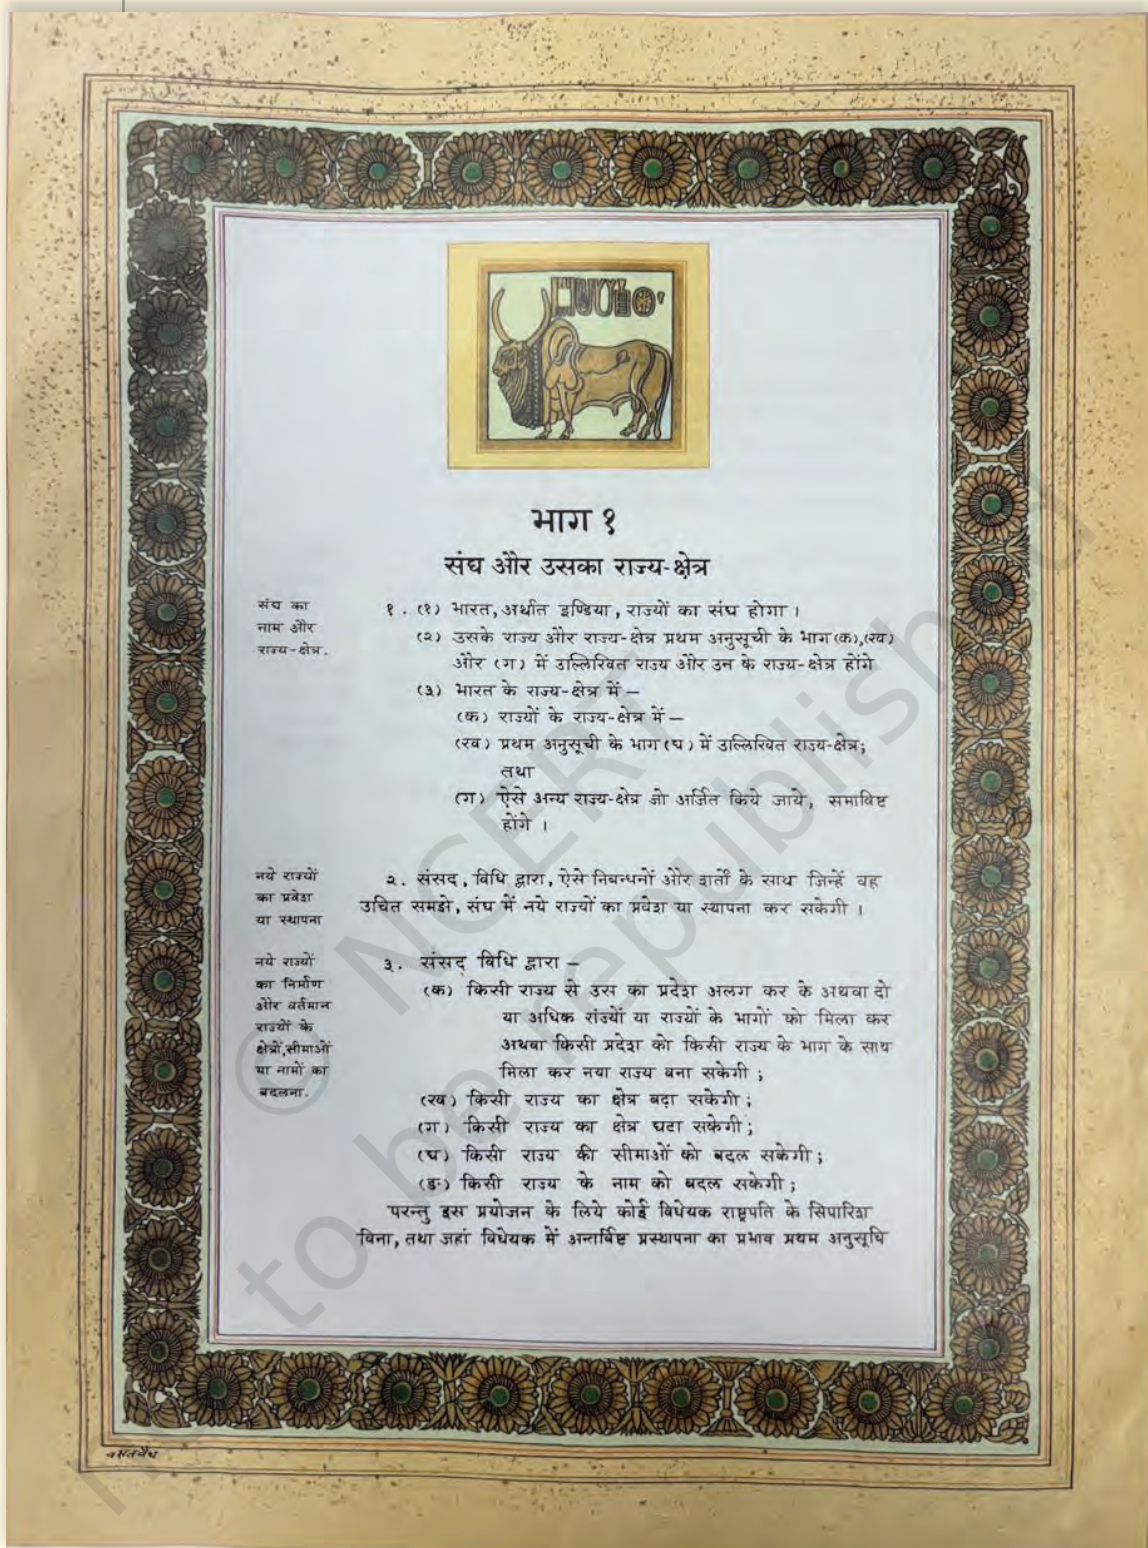 भाग १
संघ और उसका राज्य-क्षेत्र
संघ का
नाम और
राज्य-क्षेत्र.
१. (१) भारत, अर्थात इण्डिया, राज्यों का संघ होगा।
(२) उसके राज्य और राज्य-क्षेत्र प्रथम अनुसूची के भाग (क),(ख)
और (ग) में उल्लिखित राज्य और उन के राज्य-क्षेत्र होंगे
(३) भारत के राज्य-क्षेत्र में —
(क) राज्यों के राज्य-क्षेत्र में —
(ख) प्रथम अनुसूची के भाग (घ) में उल्लिखित राज्य-क्षेत्र;
तथा
(ग) ऐसे अन्य राज्य-क्षेत्र जो अर्जित किये जाये, समाविष्ट
होंगे ।
नये राज्यों
का प्रवेश
या स्थापना
२. संसद, विधि द्वारा, ऐसे निबन्धनों और शर्तों के साथ जिन्हें वह
उचित समझे, संघ में नये राज्यों का प्रवेश या स्थापना कर सकेगी ।
नये राज्यों
का निर्माण
और वर्तमान
राज्यों के
क्षेत्रों,सीमाओं
या नामों का
बदलना.
३. संसद् विधि द्वारा —
(क) किसी राज्य से उस का प्रदेश अलग कर के अथवा दो
या अधिक रांज्यों या राज्यों के भागों को मिला कर
अथवा किसी प्रदेश को किसी राज्य के भाग के साथ
मिला कर नया राज्य बना सकेगी ;
(ख) किसी राज्य का क्षेत्र बढ़ा सकेगी ;
(ग) किसी राज्य का क्षेत्र घटा सकेगी ;
(घ) किसी राज्य की सीमाओं को बदल सकेगी ;
(ङ) किसी राज्य के नाम को बदल सकेगी ;
परन्तु इस प्रयोजन के लिये कोई विधेयक राष्ट्रपति के सिपारिश
विना, तथा जहां विधेयक में अन्तर्विष्ट प्रस्थापना का प्रभाव प्रथम अनुसूचि
© NCERT
to be republished